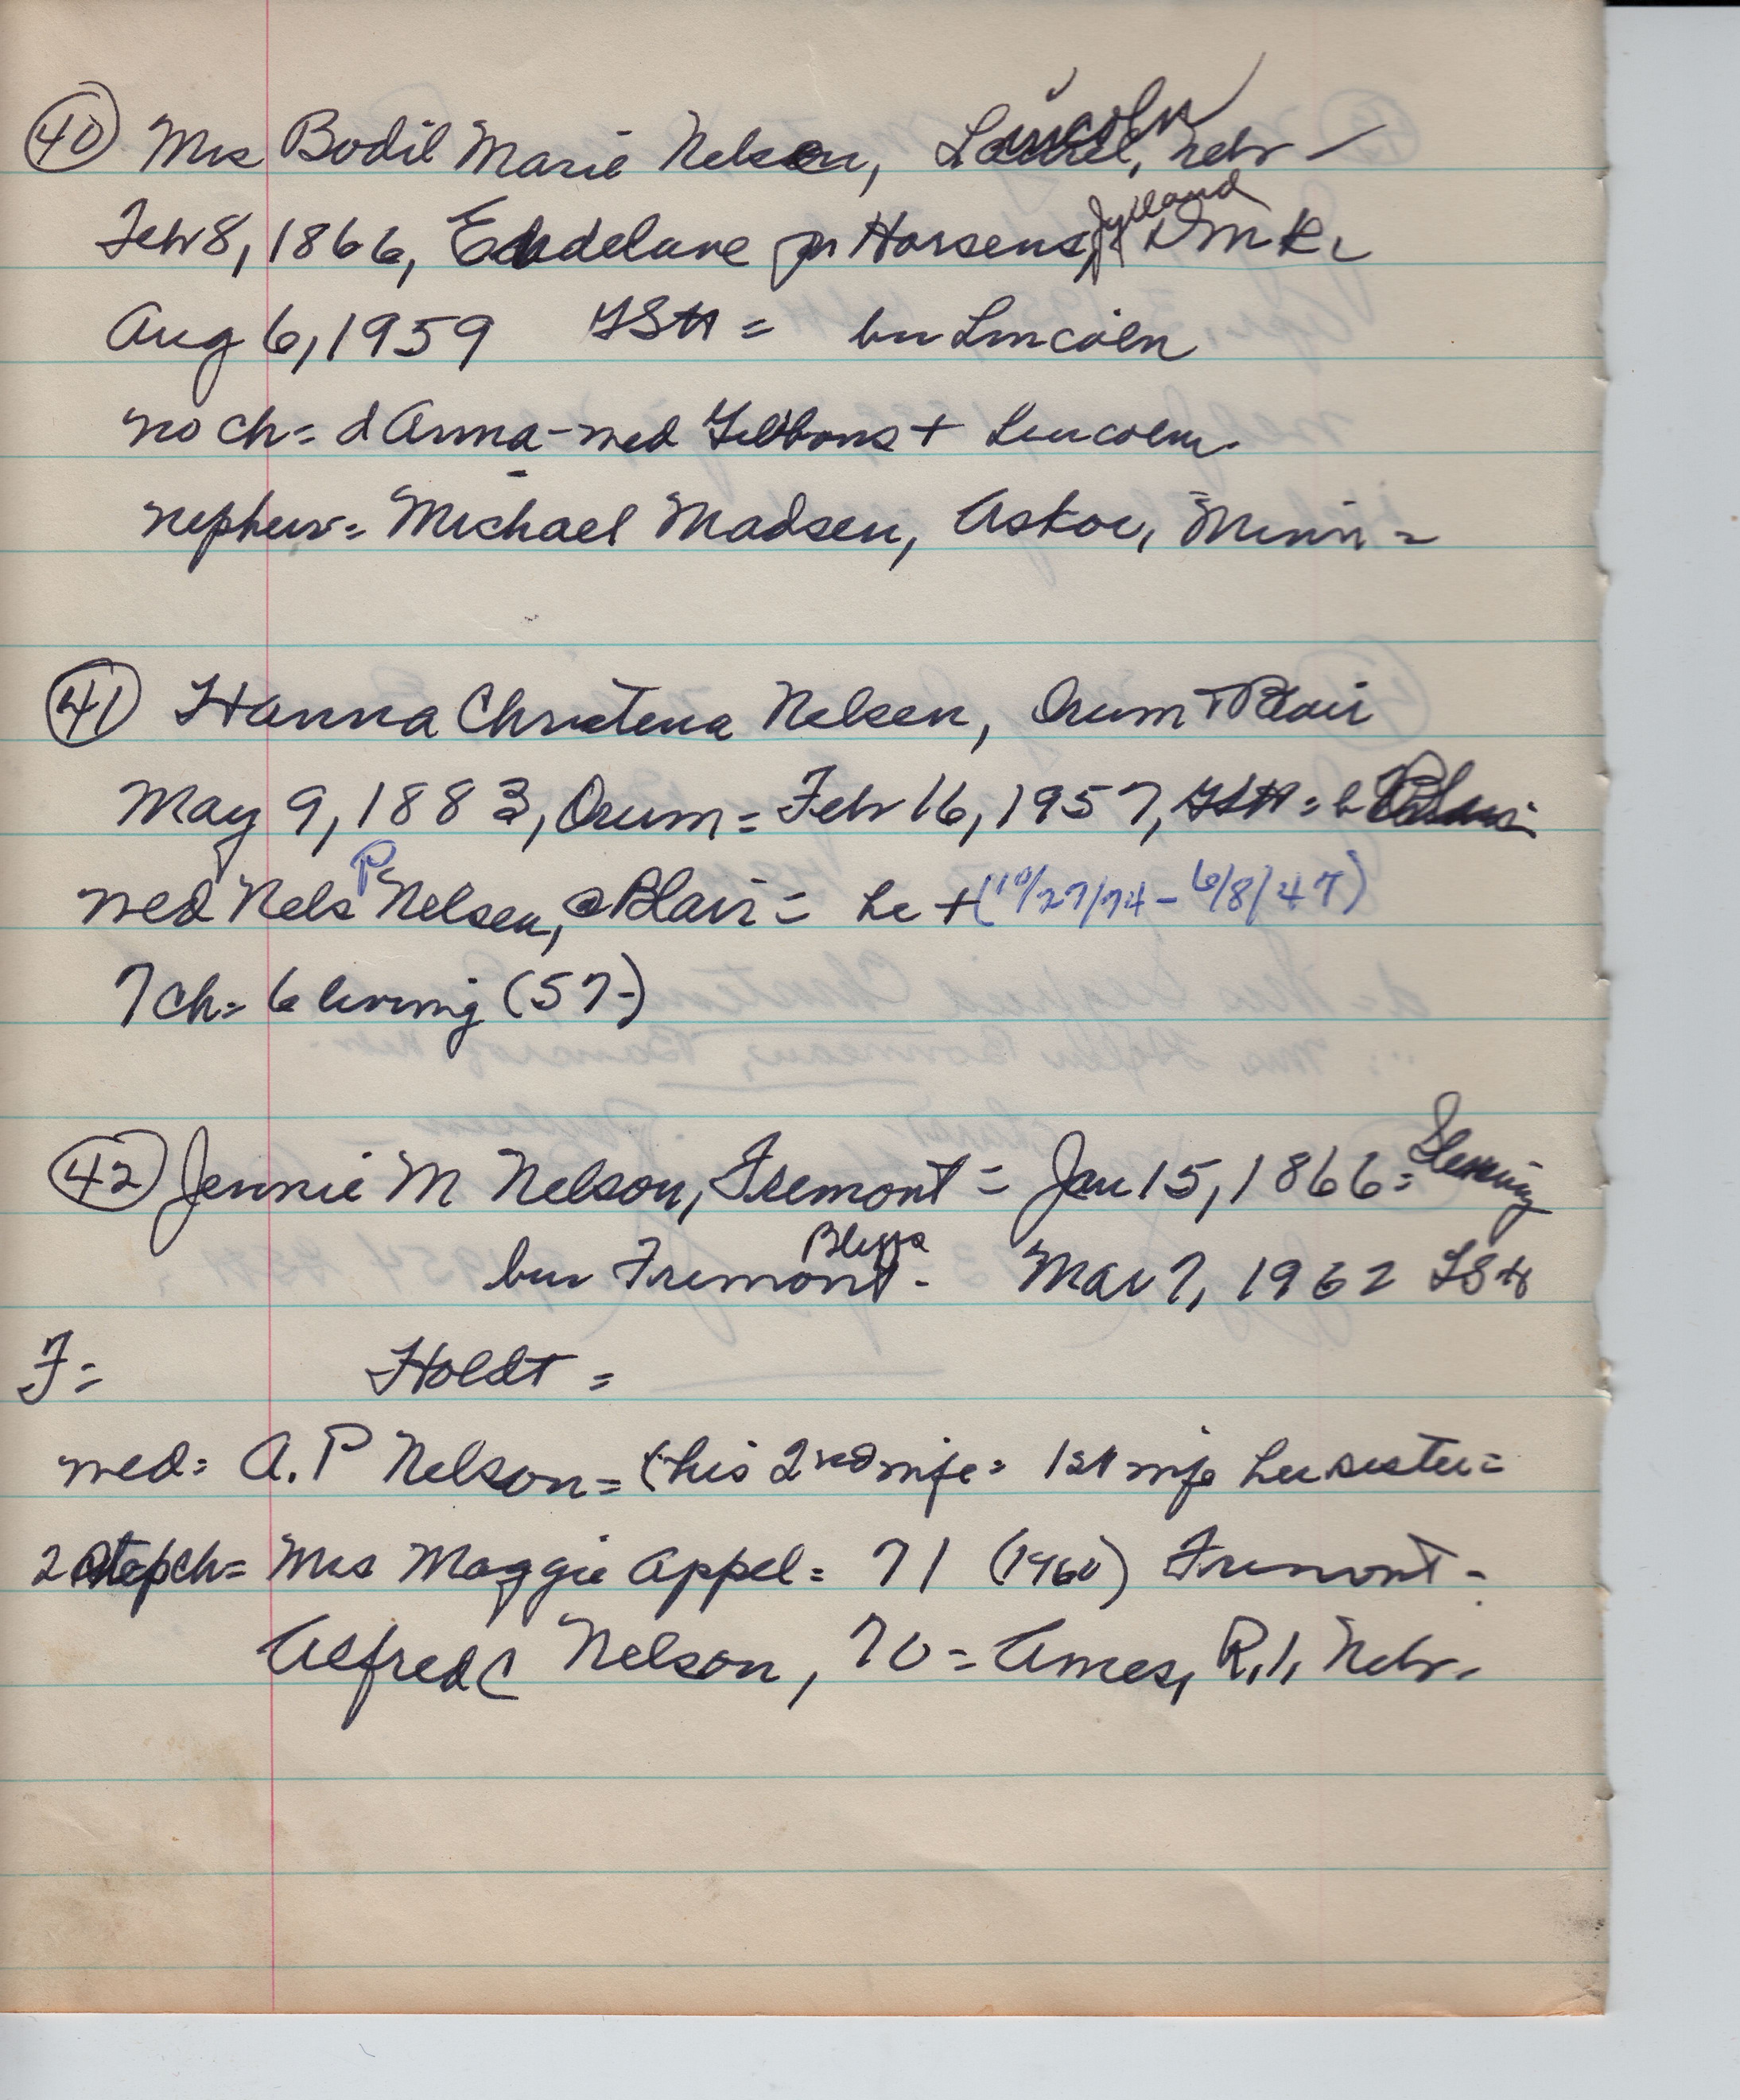 40 Mrs Bodil Marie Nelsen, Lincoln, Nebr -
Feb 8, 1866, pr Horsens, Jylland Dmk
Aug 6, 1959 FSH = bu Lincoln
no ch = d Anna - med Gibbons + Lincoln.
nephew = Michael Madsen, Askov, Minn =
41 Hanna Christena Nelsen, Orum + Blair
May 9, 1883, Orum = Feb 16, 1957, FSH = b
med Nels P Nelsen, @ Blair = he + (10/27/74 - 6/8/47)
7 ch = 6 living (57-)
42 Jennie M Nelson, Fremont = Jan 15, 1866 =
bur Fremont - Mar 7, 1962 FSH
F = Holdt =
med = A. P Nelson = (his 2nd wife = 1st wife her sister =
2 stepch = Mrs Maggie Appel = 71 (1960) Fremont -
Alfred C Nelson, 70 = Ames, R. 1, Nebr.